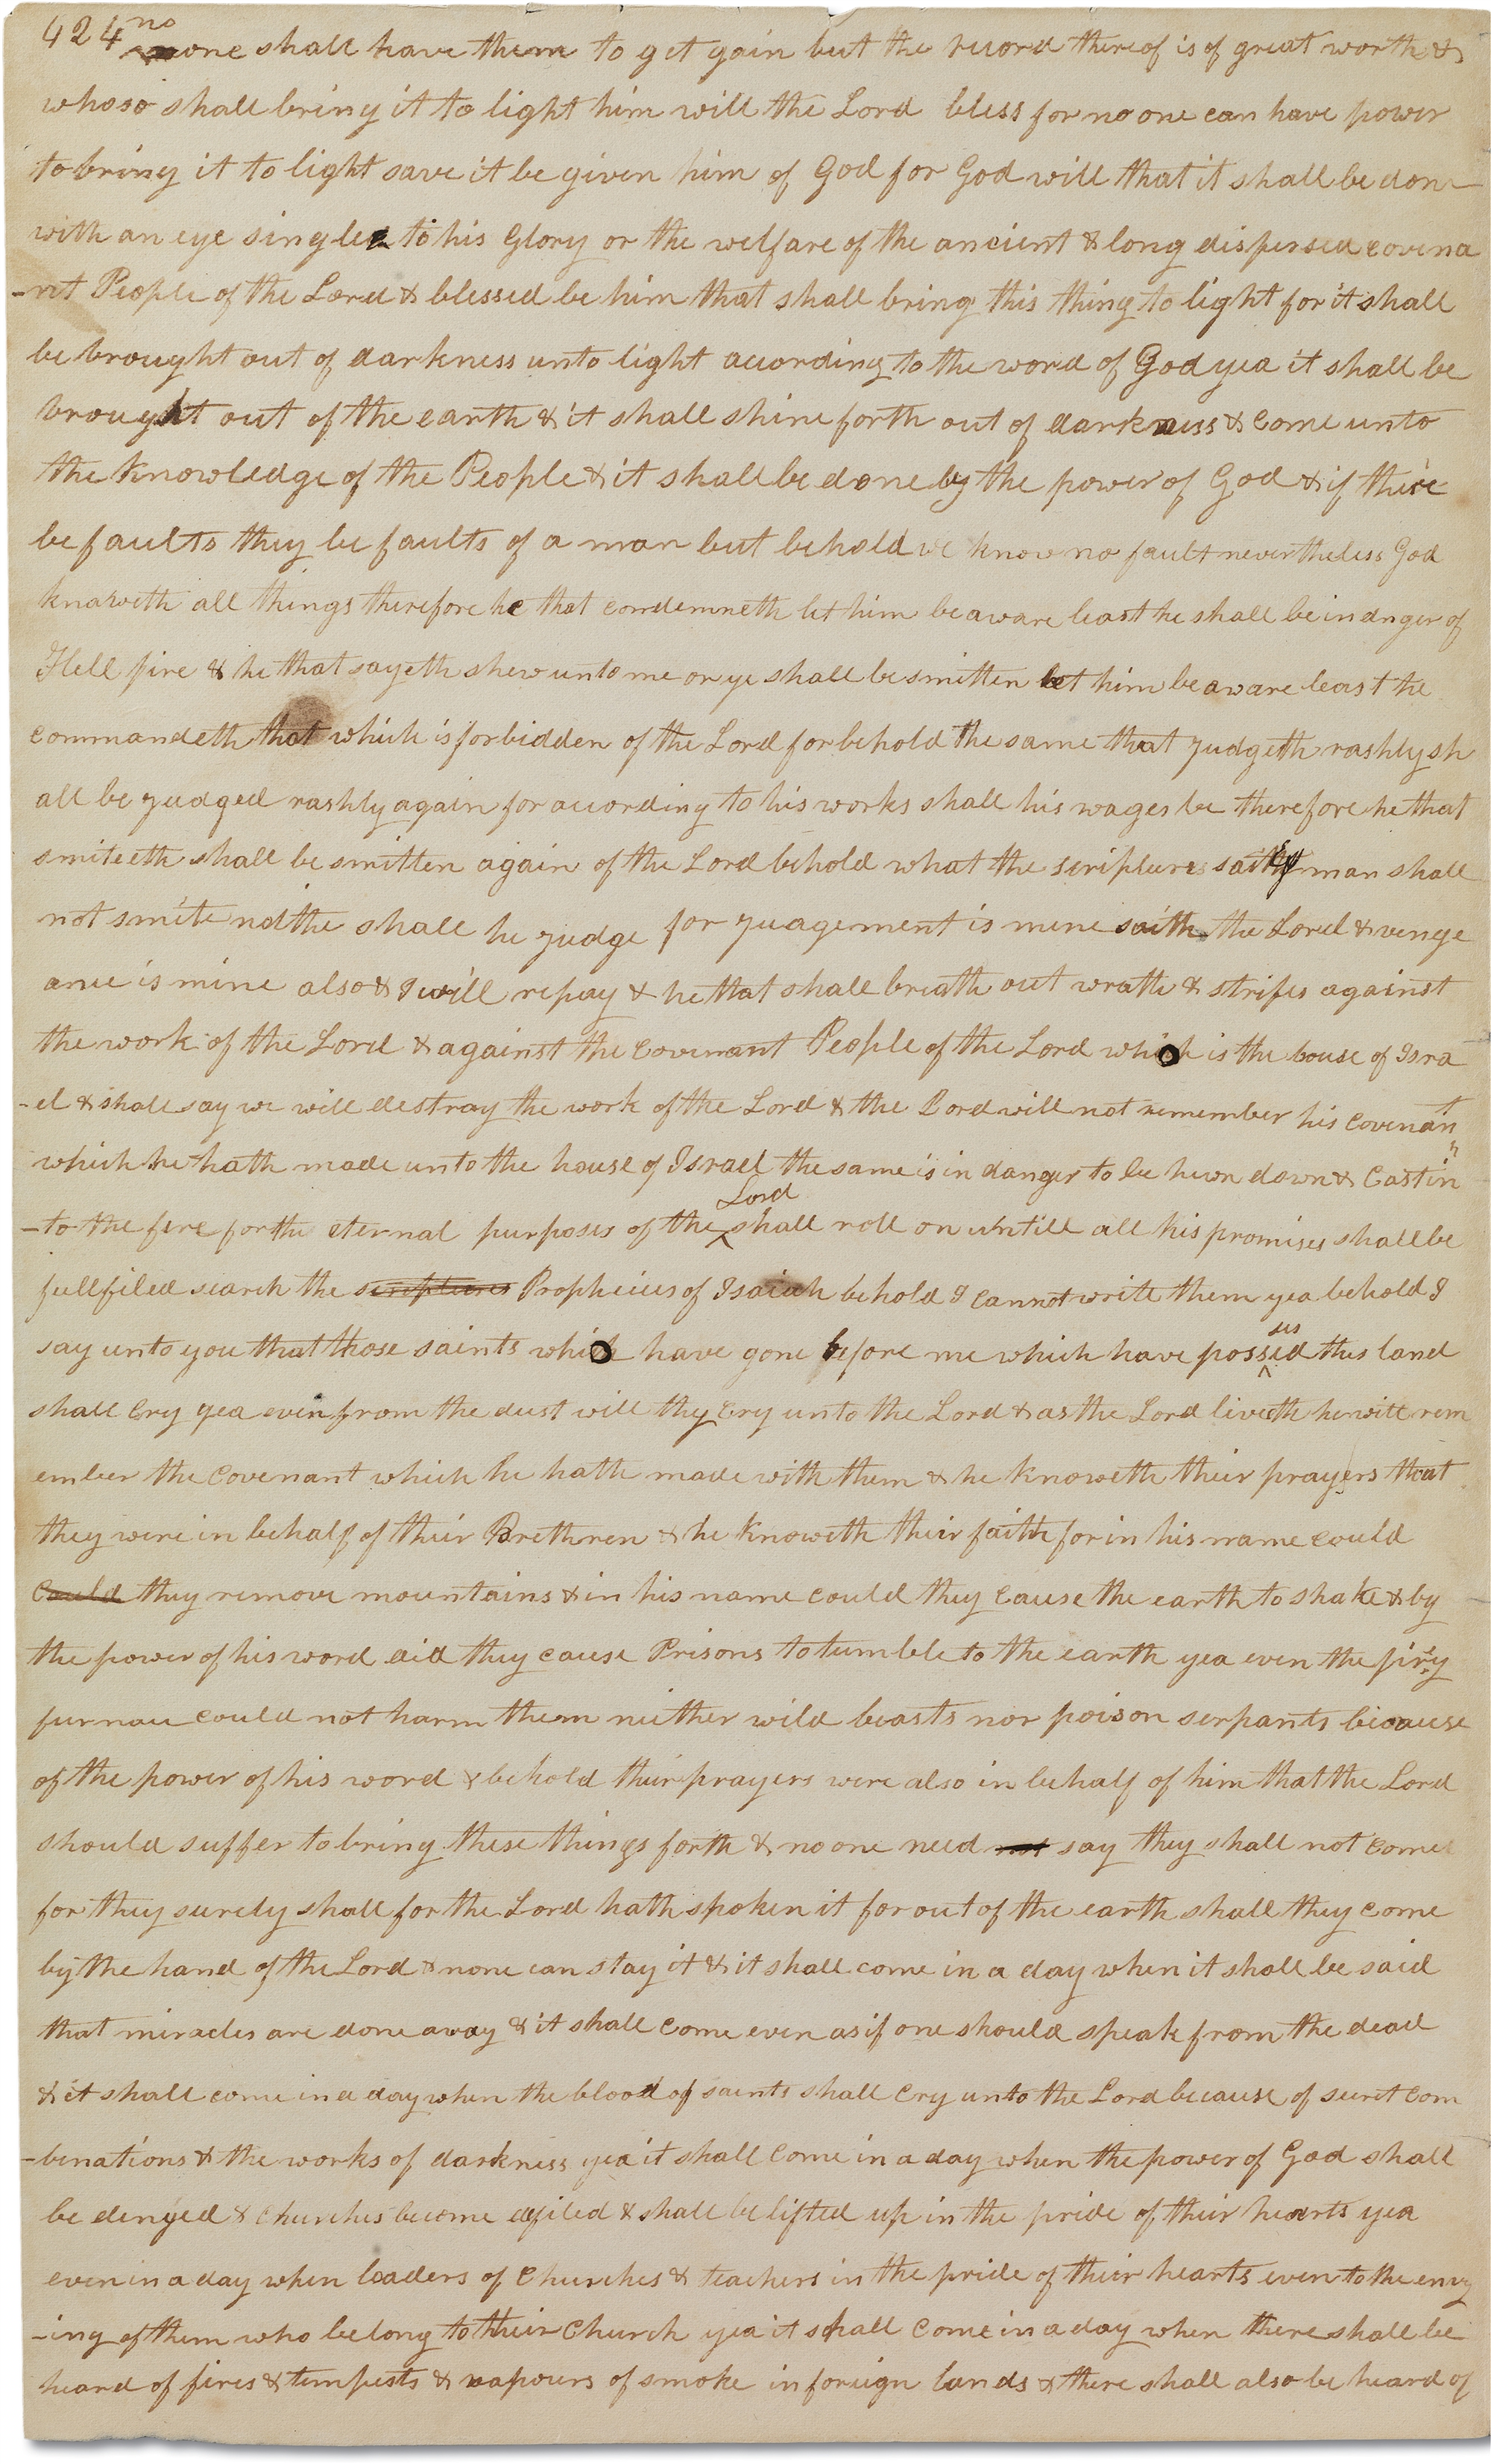 424 no
one shall have them to get gain but the record thereof is of great worth &
whoso shall bring it to light him will the Lord bless for no one can have power
to bring it to light save it be given him of God for God will that it shall be done
with an eye single to his Glory or the welfare of the ancient & long dispersed covena
-nt People of the Lord & blessed be him that shall bring this thing to light for it shall
be brought out of darkness unto light according to the word of God yea it shall be
brought out of the earth & it shall shine forth out of darkness & come unto
the knowledge of the People & it shall be done by the power of God & if there
be faults they be faults of a man but behold we know no fault nevertheless God
knoweth all things therefore he that condemneth let him be aware least he shall be in dnger of
Hell fire & he that sayeth shew unto me or ye shall be smitten let him be aware least he
commandeth that which is forbidden of the Lord for behold the same that judgeth rashly sh
all be judged rashly again for according to his works shall his wages be therefore he that
smiteth shall be smitten again of the Lord behold what the scripture man shall
not smite nither shall he judge for judgement is mine saith the Lord & venge
ance is mine also & I will repay & he that shall breath out wrath & strifes against
the work of the Lord & against the covenant People of the Lord which is the house of Isra
-el & shall say we will destroy the work of the Lord & the Lord will not remember his covenant
which he hath made unto the house of Israel the same is in danger to be hewn down & cast in
Lord
-to the fire for the eternal purposes of the ^ shall roll on untill all his promises shall be
fullfiled search the scriptures Prophecies of Isaiah behold I cannot write them yea behold I
ses
say unto you that those saints which have gone before me which have possed this land
shall cry yea even from the dust will they cry unto the Lord & as the Lord liveth he will rem
ember the covenant which he hath made with them & he knoweth their prayers that
they were in behalf of their Brethren & he knoweth their faith for in his name could
could they remove mountains & in his name could they cause the earth to shake & by
the power of his word did they cause Prisons to tumble to the earth yea even the firy
furnace could not harm them neither wild beasts nor poison serpants because
of the power of his word & behold their prayers were also in behalf of him that the Lord
should suffer to bring these things forth & no one need not say they shall not come
for they surely shall for the Lord hath spoken it for out of the earth shall they come
by the hand of the Lord & none can stay it & it shall come in a day when it shall be said
that miracles are done away & it shall come even as if one should speak from the dead
& it shall come in a day when the blood of saints shall cry unto the Lord because of secret com
-binations & the works of darkness yea it shall come in a day when the power of God shall
be denyed & Churches become defiled & shall be lifted up in the pride of their hearts yea
even in a day when leaders of Churches & teachers in the pride of their hearts even to the envy
-ing of them who belong to their Church yea it shall come in a day when there shall be
heard of fires & tempests & vapours of smoke in foreign lands & there shall also be heard of